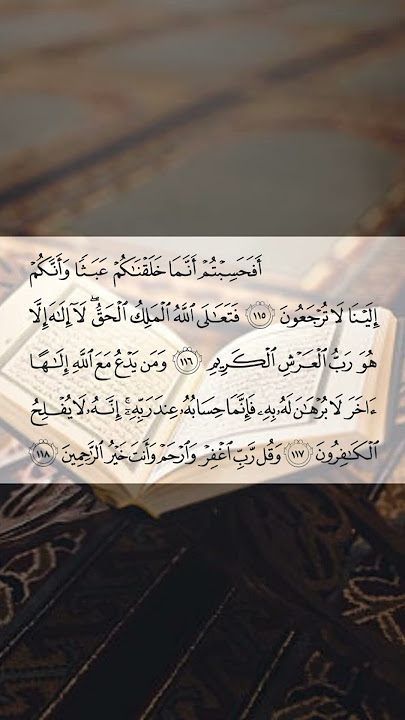 أَفَحَسِبْتُمْ أَنَّمَا خَلَقْنَٰكُمْ عَبَثًا وَأَنَّكُمْ
إِلَيْنَا لَا تُرْجَعُونَ ١١٥ فَتَعَٰلَى ٱللَّهُ ٱلْمَلِكُ ٱلْحَقُّ ۖ لَآ إِلَٰهَ إِلَّا
هُوَ رَبُّ ٱلْعَرْشِ ٱلْكَرِيمِ ١١٦ وَمَن يَدْعُ مَعَ ٱللَّهِ إِلَٰهًا
ءَاخَرَ لَا بُرْهَٰنَ لَهُۥ بِهِۦ فَإِنَّمَا حِسَابُهُۥ عِندَ رَبِّهِۦٓ ۚ إِنَّهُۥ لَا يُفْلِحُ
ٱلْكَٰفِرُونَ ١١٧ وَقُل رَّبِّ ٱغْفِرْ وَٱرْحَمْ وَأَنتَ خَيْرُ ٱلرَّٰحِمِينَ ١١٨